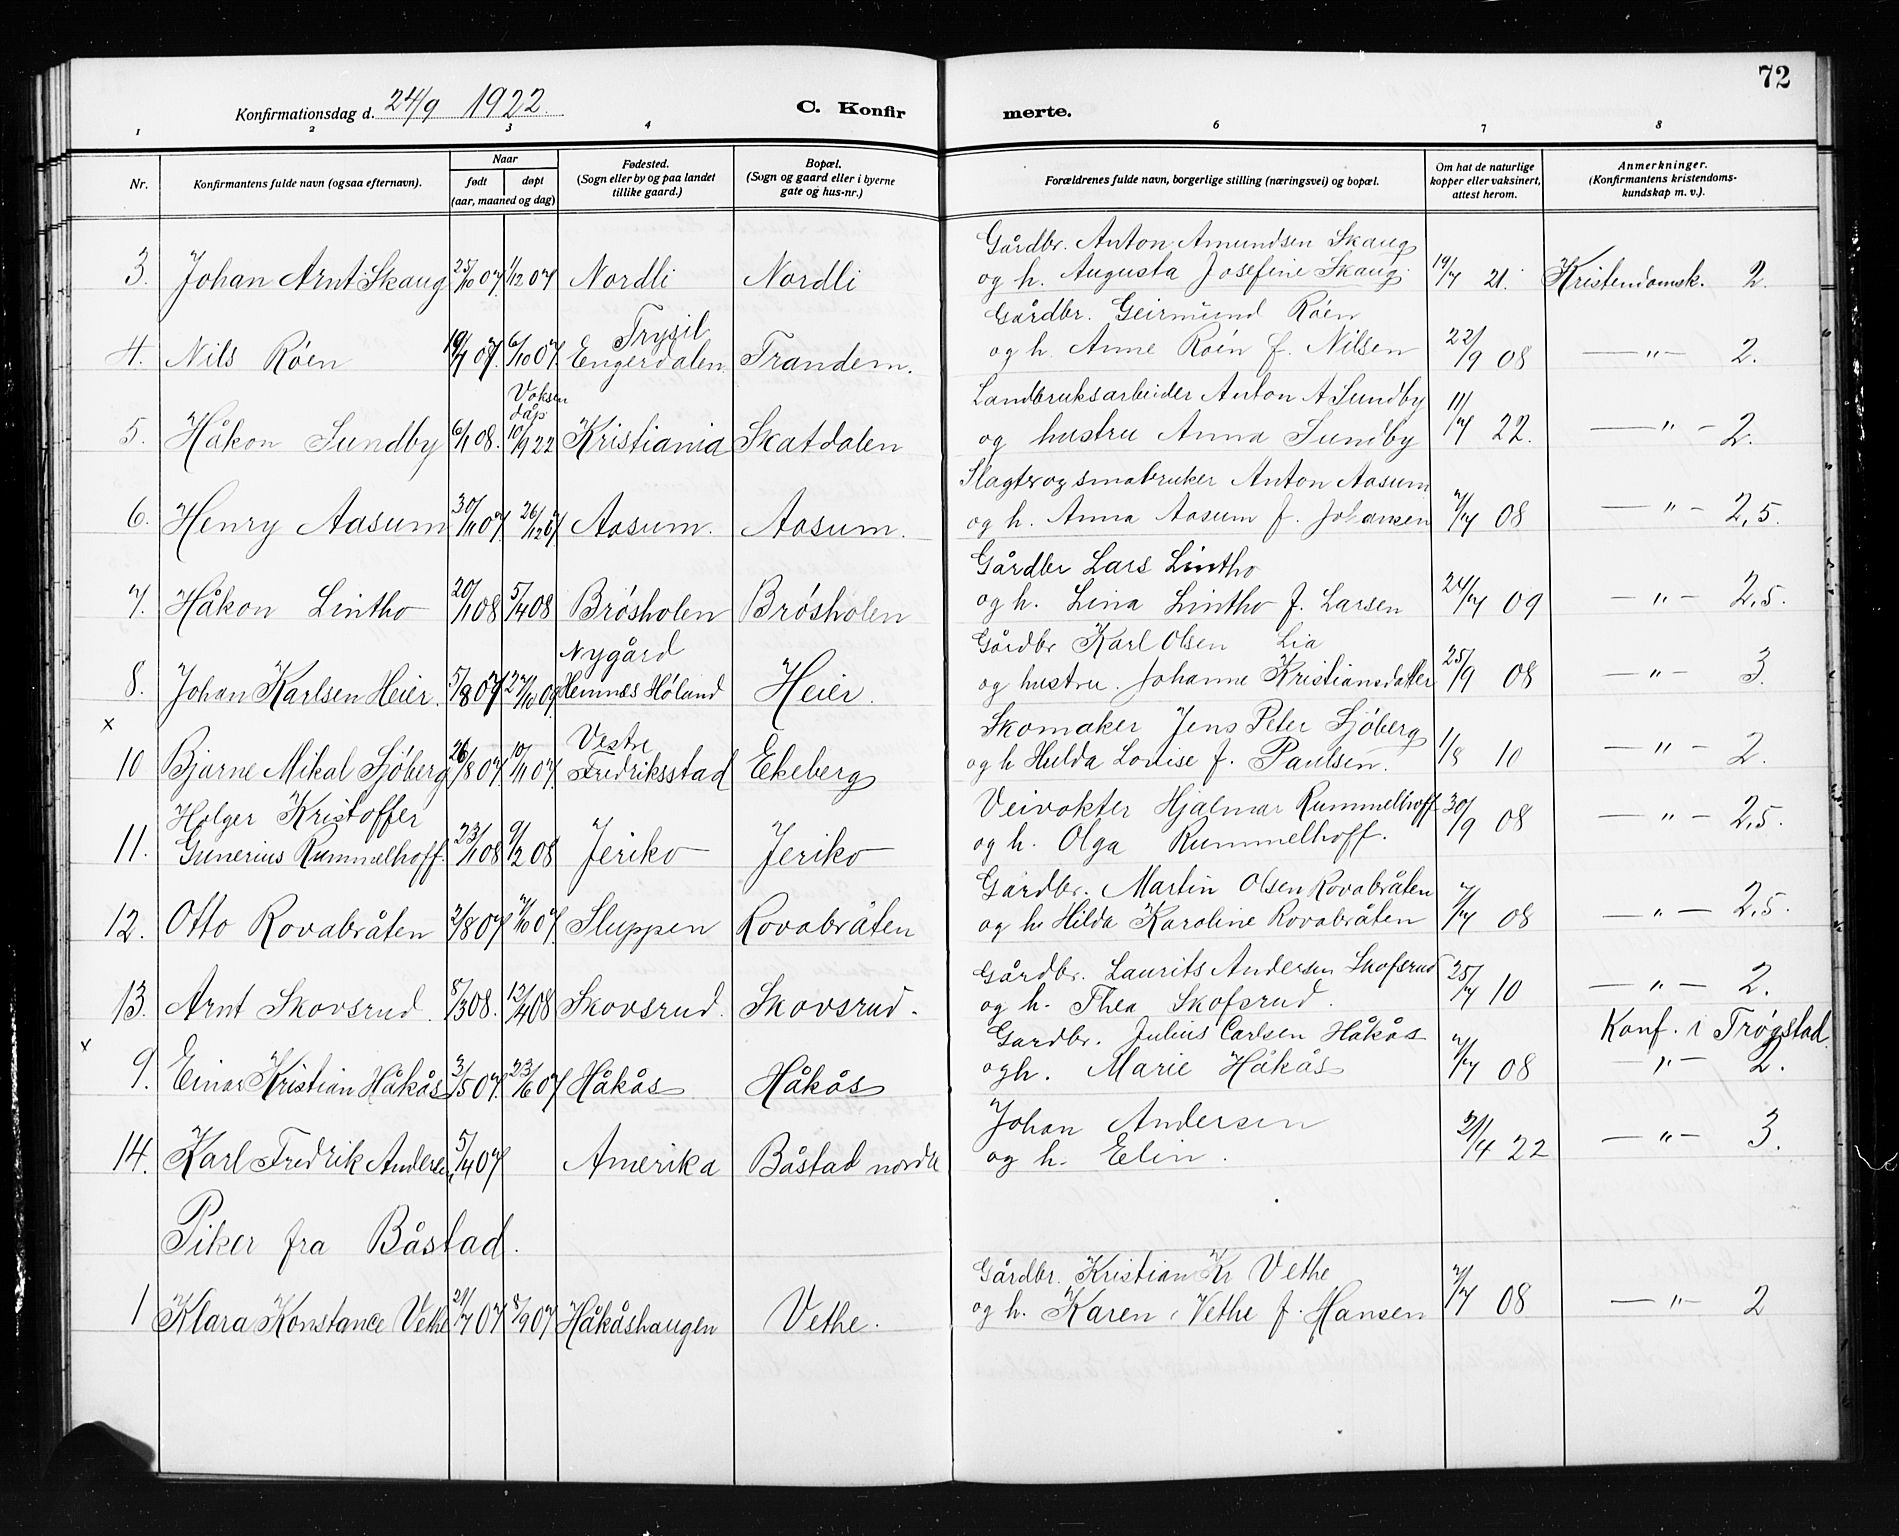 72
Konfirmationsdag d. 24/9 1922. C. Konfirmerte.
1 2 3 4 6 7 8
Nr. Konfirmantens fulde navn (ogsaa efternavn). Naar født døpt (aar, maaned og dag) Fødested. (Sogn eller by og paa landet tillike gaard.) Bopæl. (Sogn og gaard eller i byerne gate og hus-nr.) Forældrenes fulde navn, borgerlige stilling (næringsvei) og bopæl. Om hat de naturlige kopper eller vaksinert, attest herom. Anmerkninger. (Konfirmantens kristendomskundskap m. v.)
Gårdbr. Anton Amundsen Skaug
3. Johan Arnt Skaug 25/10 07. 1/12 07 Nordli Nordli og h. Augusta Josefine Skaug. 19/7 21. Kristendomsk. 2.
Trysil Gårdbr. Geirmund Röen
4. Nils Röen 19/7 07. 6/10 07. Engerdalen Trandem. og h. Anne Röen f. Nilsen 22/9 08 —"— 2.
Voksen dåp Landbruksarbeider Anton A Sundby
5. Håkon Sundby 6/1 08. 10/9 22 Kristiania Skatdalen og hustru Anna Sundby 11/7 22. —"— 2.
Slagter og småbruker Anton Aasum
6. Henry Aasum 30/11 07. 26/12 07 Aasum. Aasum. og h. Anna Aasum f. Johansen 7/7 08 —"— 2,5.
Gårdbr Lars Lintho
7. Håkon Lintho 20/1 08 5/4 08 Brösholen Brösholen og h. Lina Lintho f. Larsen 24/7 09 —"— 2,5.
Nygård Gårdbr Karl Olsen Lia
8. Johan Karlsen Heier. 5/8 07 27/10 07 Hemnes Höland Heier. og hustru. Johanne Kristiansdatter 25/9 08 —"— 3.
x Vestre Skomaker Jens Peter Sjöberg
10 Bjarne Mikal Sjöberg 26/8 07. 10/11 07. Fredriksstad Ekeberg og h Hulda Louise f. Paulsen. 1/8 10 —"— 2.
Holger Kristoffer Veivokter Hjalmar Rummelhoff
11. Gunerius Rummelhoff. 23/1 08 9/2 08 Jeriko Jeriko og h. Olga Rummelhoff. 30/9 08 —"— 2,5.
Gårdbr. Martin Olsen Rovabråten
12. Otto Rovabråten 2/8 07 7/10 07. Sluppen Rovabråten og h. Hilda Karoline Rovabråten 7/7 08 —"— 2,5.
Gårdbr. Laurits Andersen Skofsrud
13. Arnt Skovsrud. 8/3 08. 12/4 08 Skovsrud. Skovsrud. og h. Thea Skofsrud. 25/7 10 —"— 2.
x Gardbr. Julius Carlsen Håkås Konf. i Trögstad
9. Einar Kristian Håkås 3/5 07. 23/6 07 Håkås Håkås og h. Marie Håkås 7/7 08 —"— 2.
Johan Andersen
14. Karl Fredrik Andersen 5/4 07 Amerika Båstad nordre og h. Elin. 21/4 22 —"— 3.
Piker fra Båstad.
Gårdbr. Kristian Kr Vethe
1 Klara Konstance Vethe 21/7 07 8/9 07 Håkåshaugen Vethe. og h. Karen Vethe f. Hansen 7/7 08 —"— 2